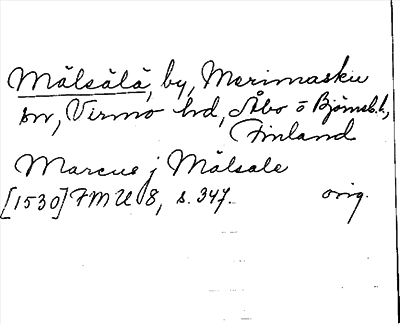 Mälsälä, by, Merimasku
sn, Virmo hd, Åbo o Björneb. l.,
Finland
Marcus j Mälsale
[1530] FMU 8, s. 347. orig.